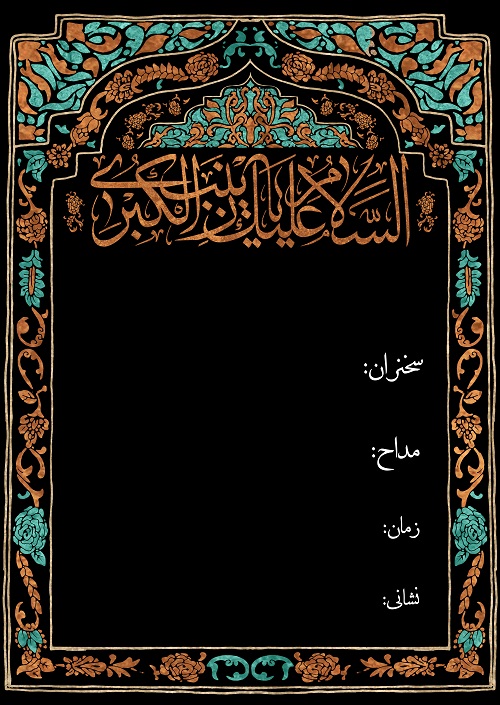 السلام علیک یا زینب الکبری
سخنران:
مداح:
زمان:
نشانی: